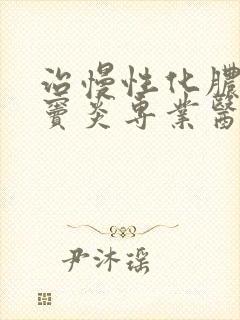 治慢性化膿
竇炎専業醫
尹沐瑶